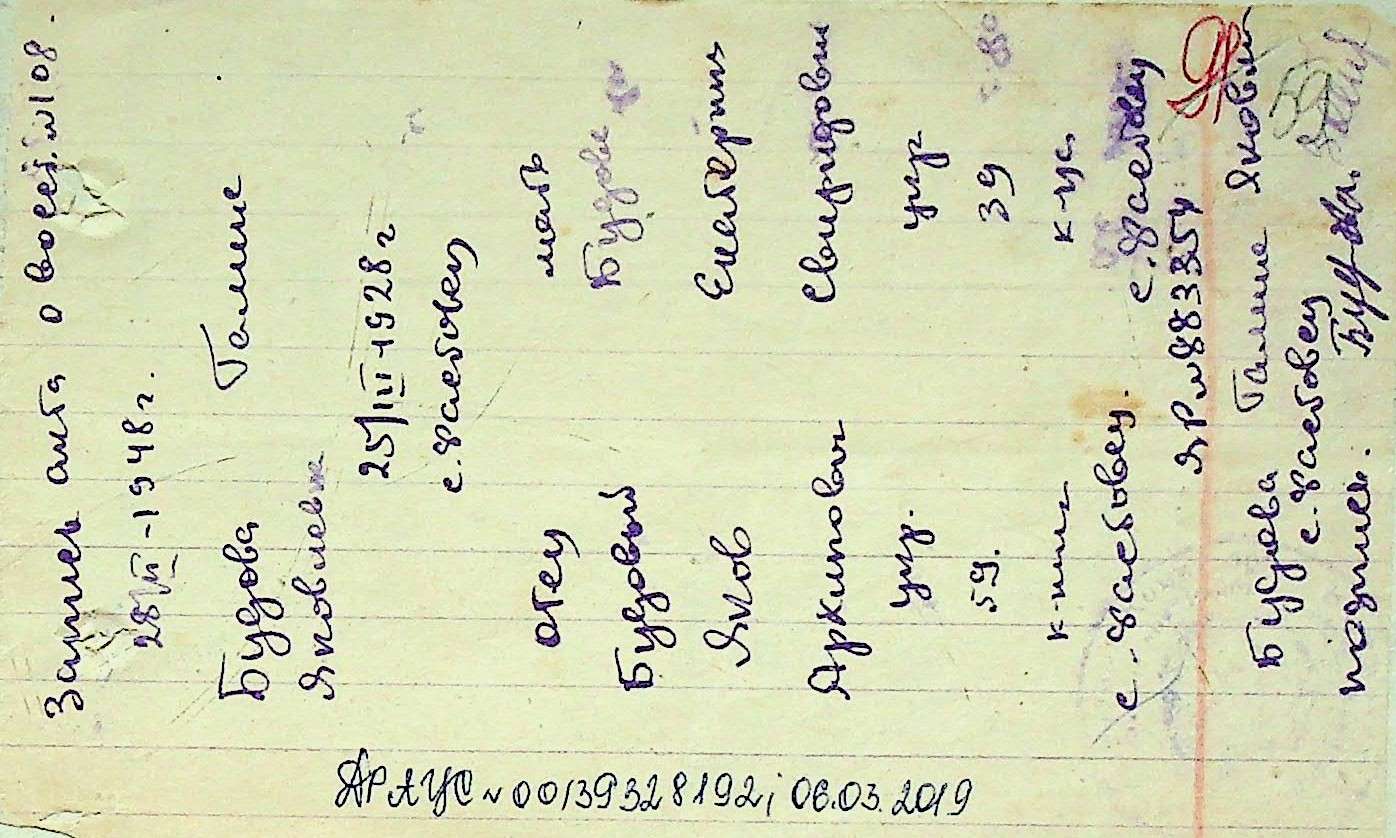 Запись акта о восст. №108.
28/VII-1948г.
Будова Галина
Яковлевна
25/III-1928г
с. Фастовец
отец мать
Будовый Будова
Яков Екатерина
Архипович Свиридовна
укр. укр
59. 39
к-ник к-ца
с. Фастовец. с. Фастовец
ЯР №883354
Будова Галина Яковл
с. Фастовец
подпись. Будова
ДРАЦС №00139328192; 06.03.2019